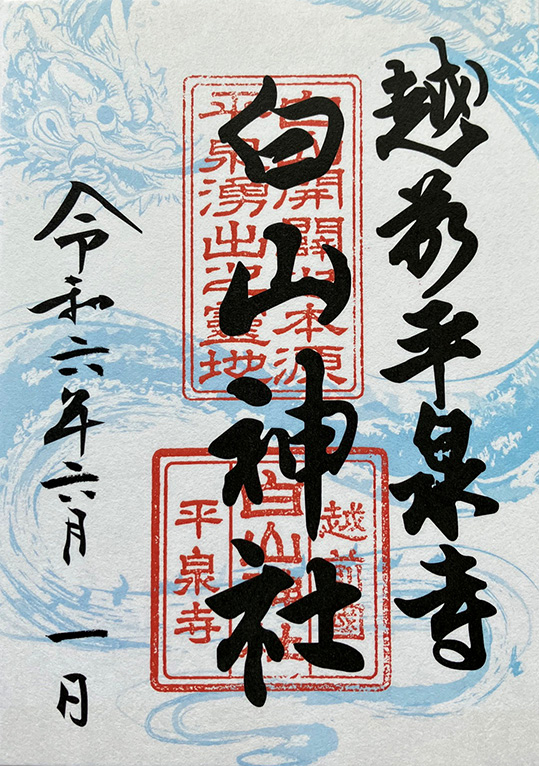 越前平泉寺
白山神社
白山開闢之本源
平泉湧出之靈地
越前國
白山神社
平泉寺
令和六年六月一日